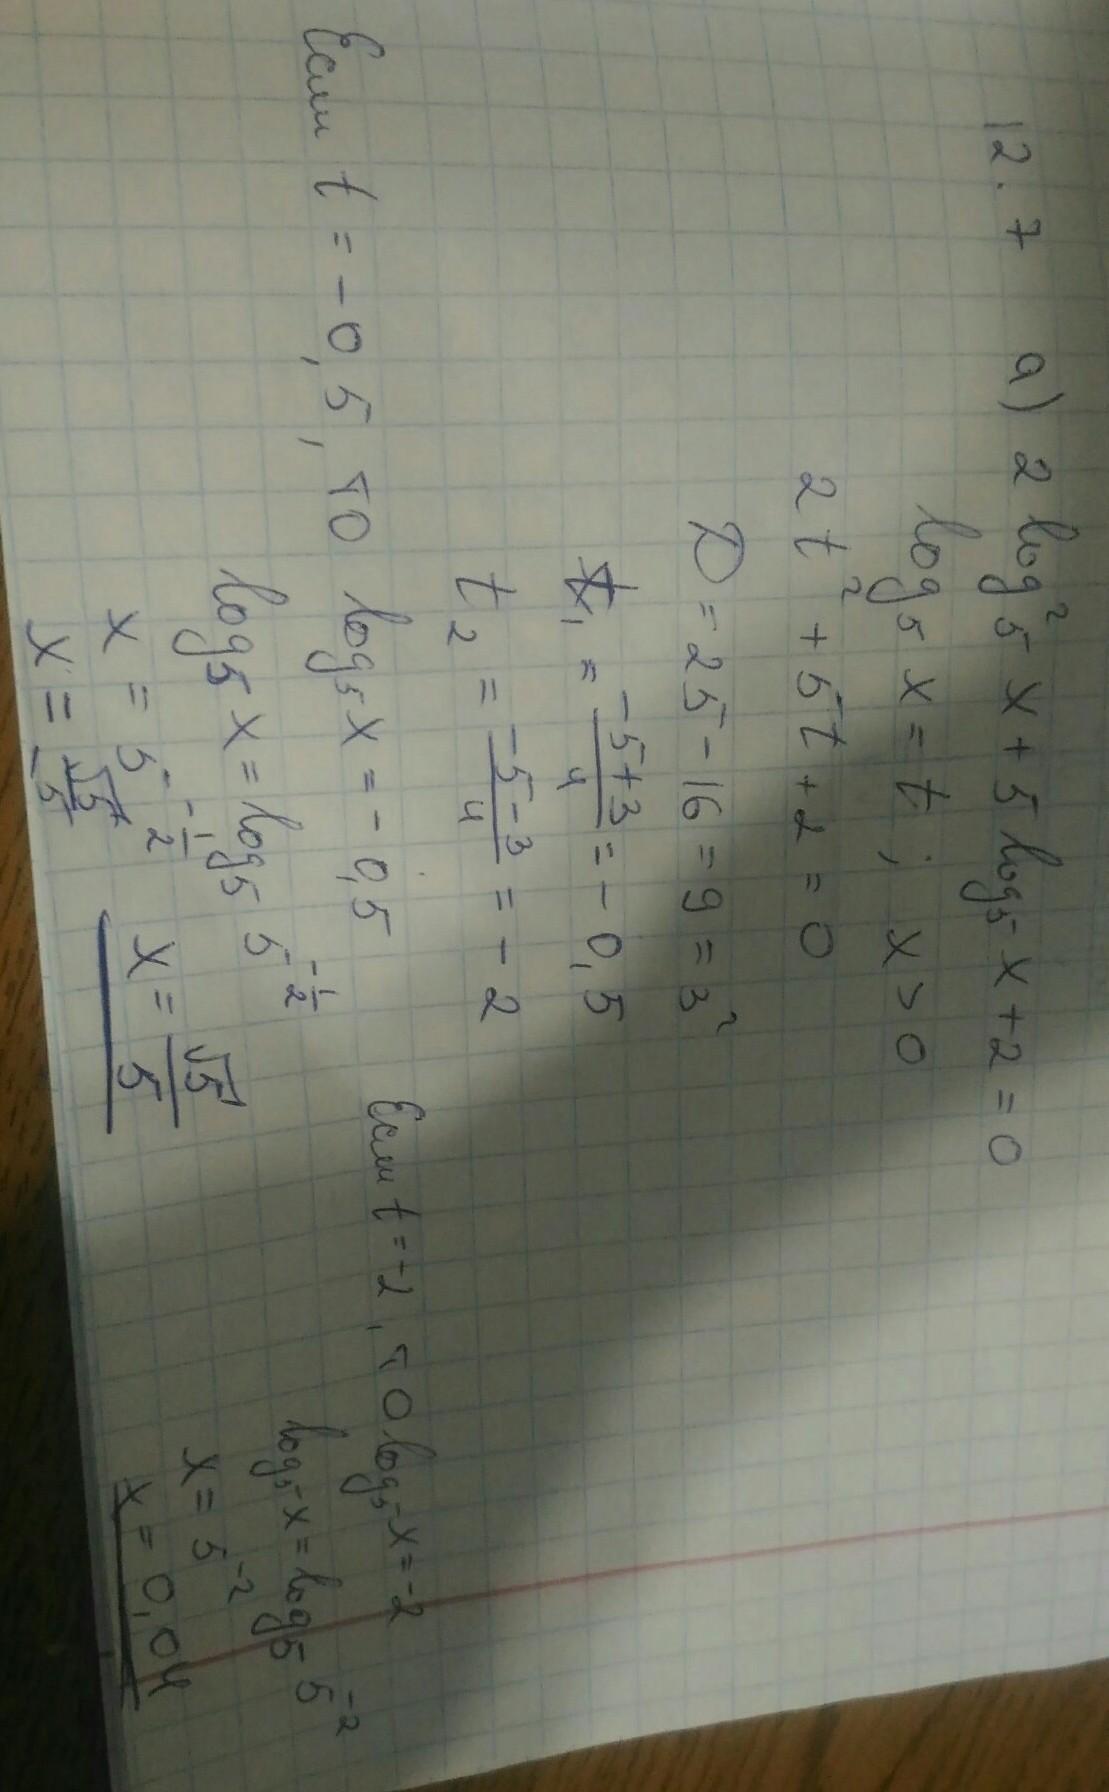 12.7 а) 2 log²₅ x + 5 log₅ x + 2 = 0
log₅ x = t ; x > 0
2t² + 5t + 2 = 0
D = 25 - 16 = 9 = 3²
t₁ = (-5+3)/4 = - 0,5
t₂ = (-5-3)/4 = - 2
Если t = - 0,5, то log₅ x = - 0,5
log₅ x = log₅ 5^(-1/2)
x = 5^(-1/2)
x = √5/5
x = √5/5
Если t = -2, то log₅ x = -2
log₅ x = log₅ 5⁻²
x = 5⁻²
x = 0,04